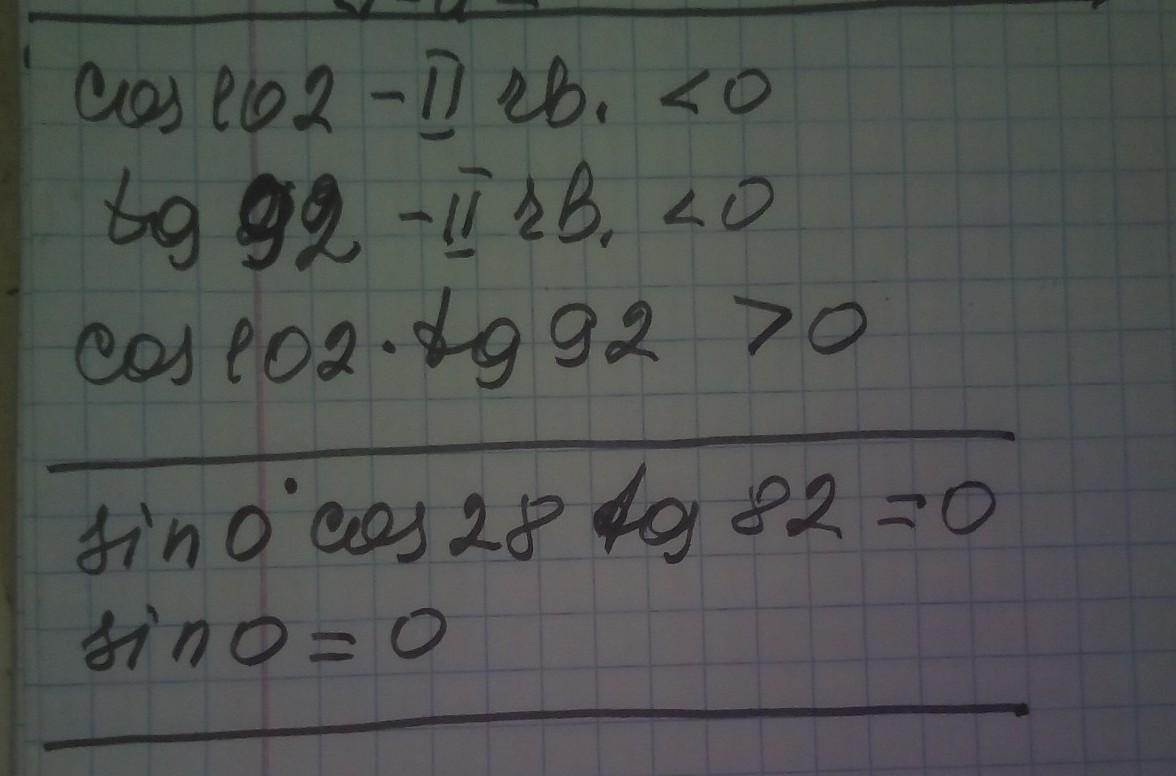 cos 102 - II чв. < 0
tg 92 - II чв. < 0
cos 102 · tg 92 > 0
sin 0° cos 28 tg 82 = 0
sin 0 = 0